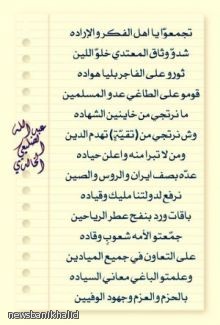 تجمعوا يا اهل الفكر والإراده
شدوّ وثاق المعتدي خلوّ اللين
ثورو على الفاجر بليا هواده
قومو على الطاغي عدو المسلمين
ما نرتجي من خاينين الشهاده
وش نرتجي من (تقيّة) تهدم الدين
ومن لا تبرا منه واعلن حياده
عدّه بصف ايران والروس والصين
نرفع لدولتنا مليك وقياده
باقات ورد بنفح عطر الرياحين
جمّعتو الأمه شعوبٍ وقاده
على التعاون في جميع الميادين
وعلمتو الباغي معاني السياده
بالحزم والعزم وجهود الوفيين
عبدالله
الخالدي
newstanikhalid